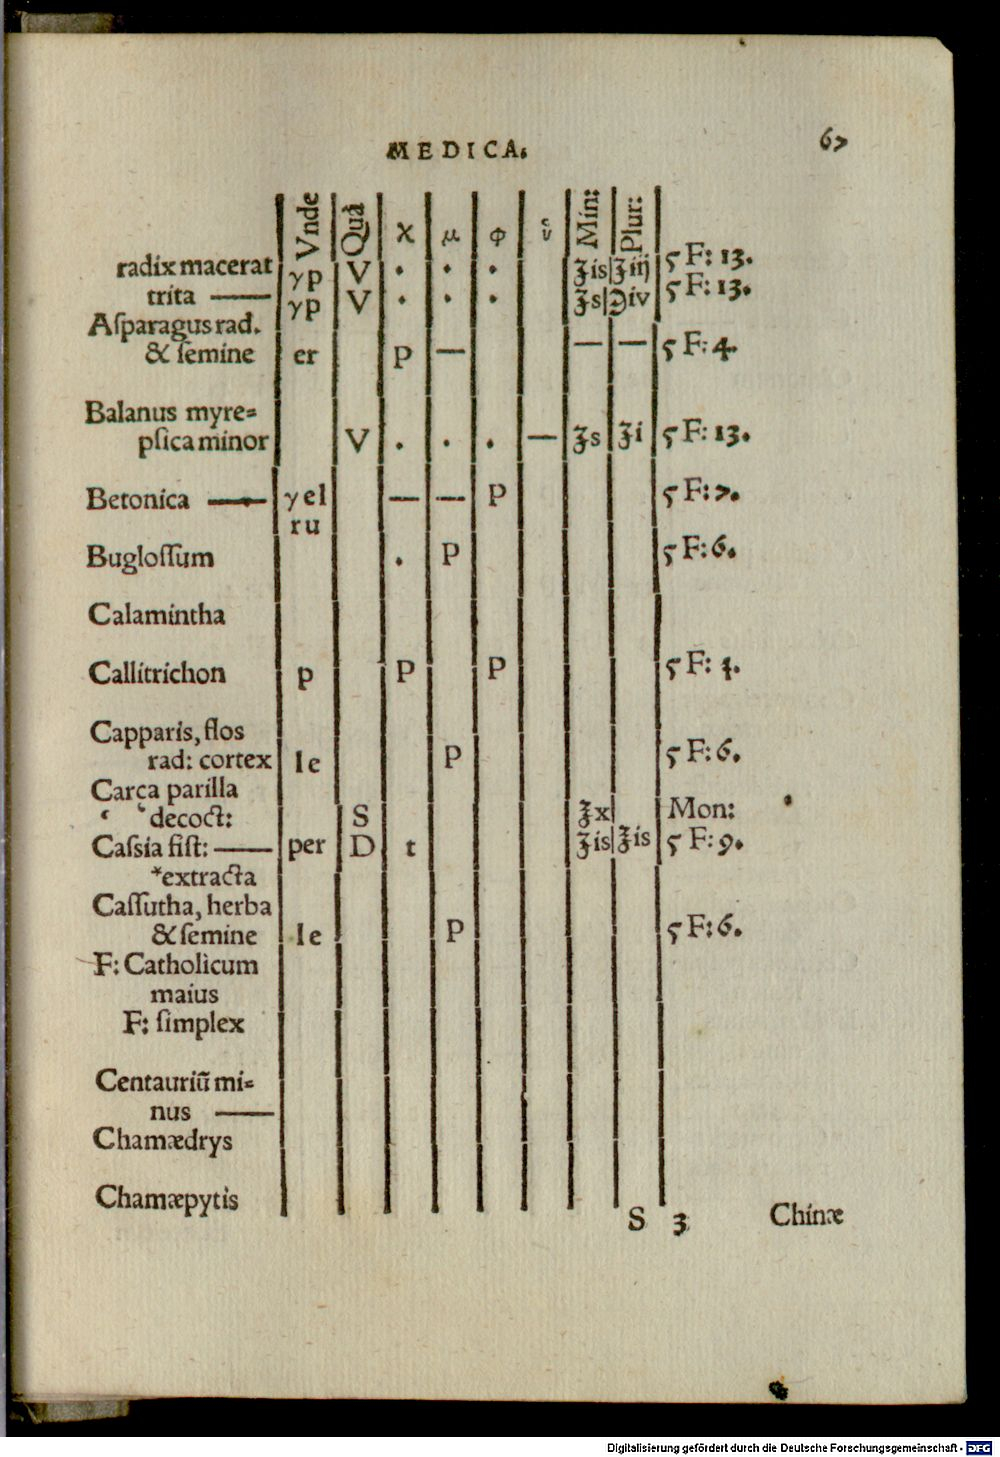 MEDICA. 67
Vnde Quâ χ μ φ ΰ Min: Plur:
radix macerat γp V · · · ʒis ʒiij 5 F: 13.
trita — γp V · · · ʒs ℈iv 5 F: 13.
Aſparagus rad.
& ſemine er P — — — 5 F: 4.
Balanus myre=
pſica minor V . . . — ʒs ʒi 5 F: 13.
Betonica — γel — — P 5 F: 7.
ru
Bugloſſum . P 5 F: 6.
Calamintha
Callitrichon p P P 5 F: 1.
Capparis, flos
rad: cortex le P 5 F: 6.
Carça parilla
decoct: S ʒx Mon:
Caſsia fiſt: — per D t ʒis ʒis 5 F: 9.
*extracta
Caſſutha, herba
& ſemine le P 5 F: 6.
F: Catholicum
maius
F: ſimplex
Centauriũ mi=
nus —
Chamædrys
Chamæpytis
S 3 Chinæ
Digitalisierung gefördert durch die Deutsche Forschungsgemeinschaft - DFG